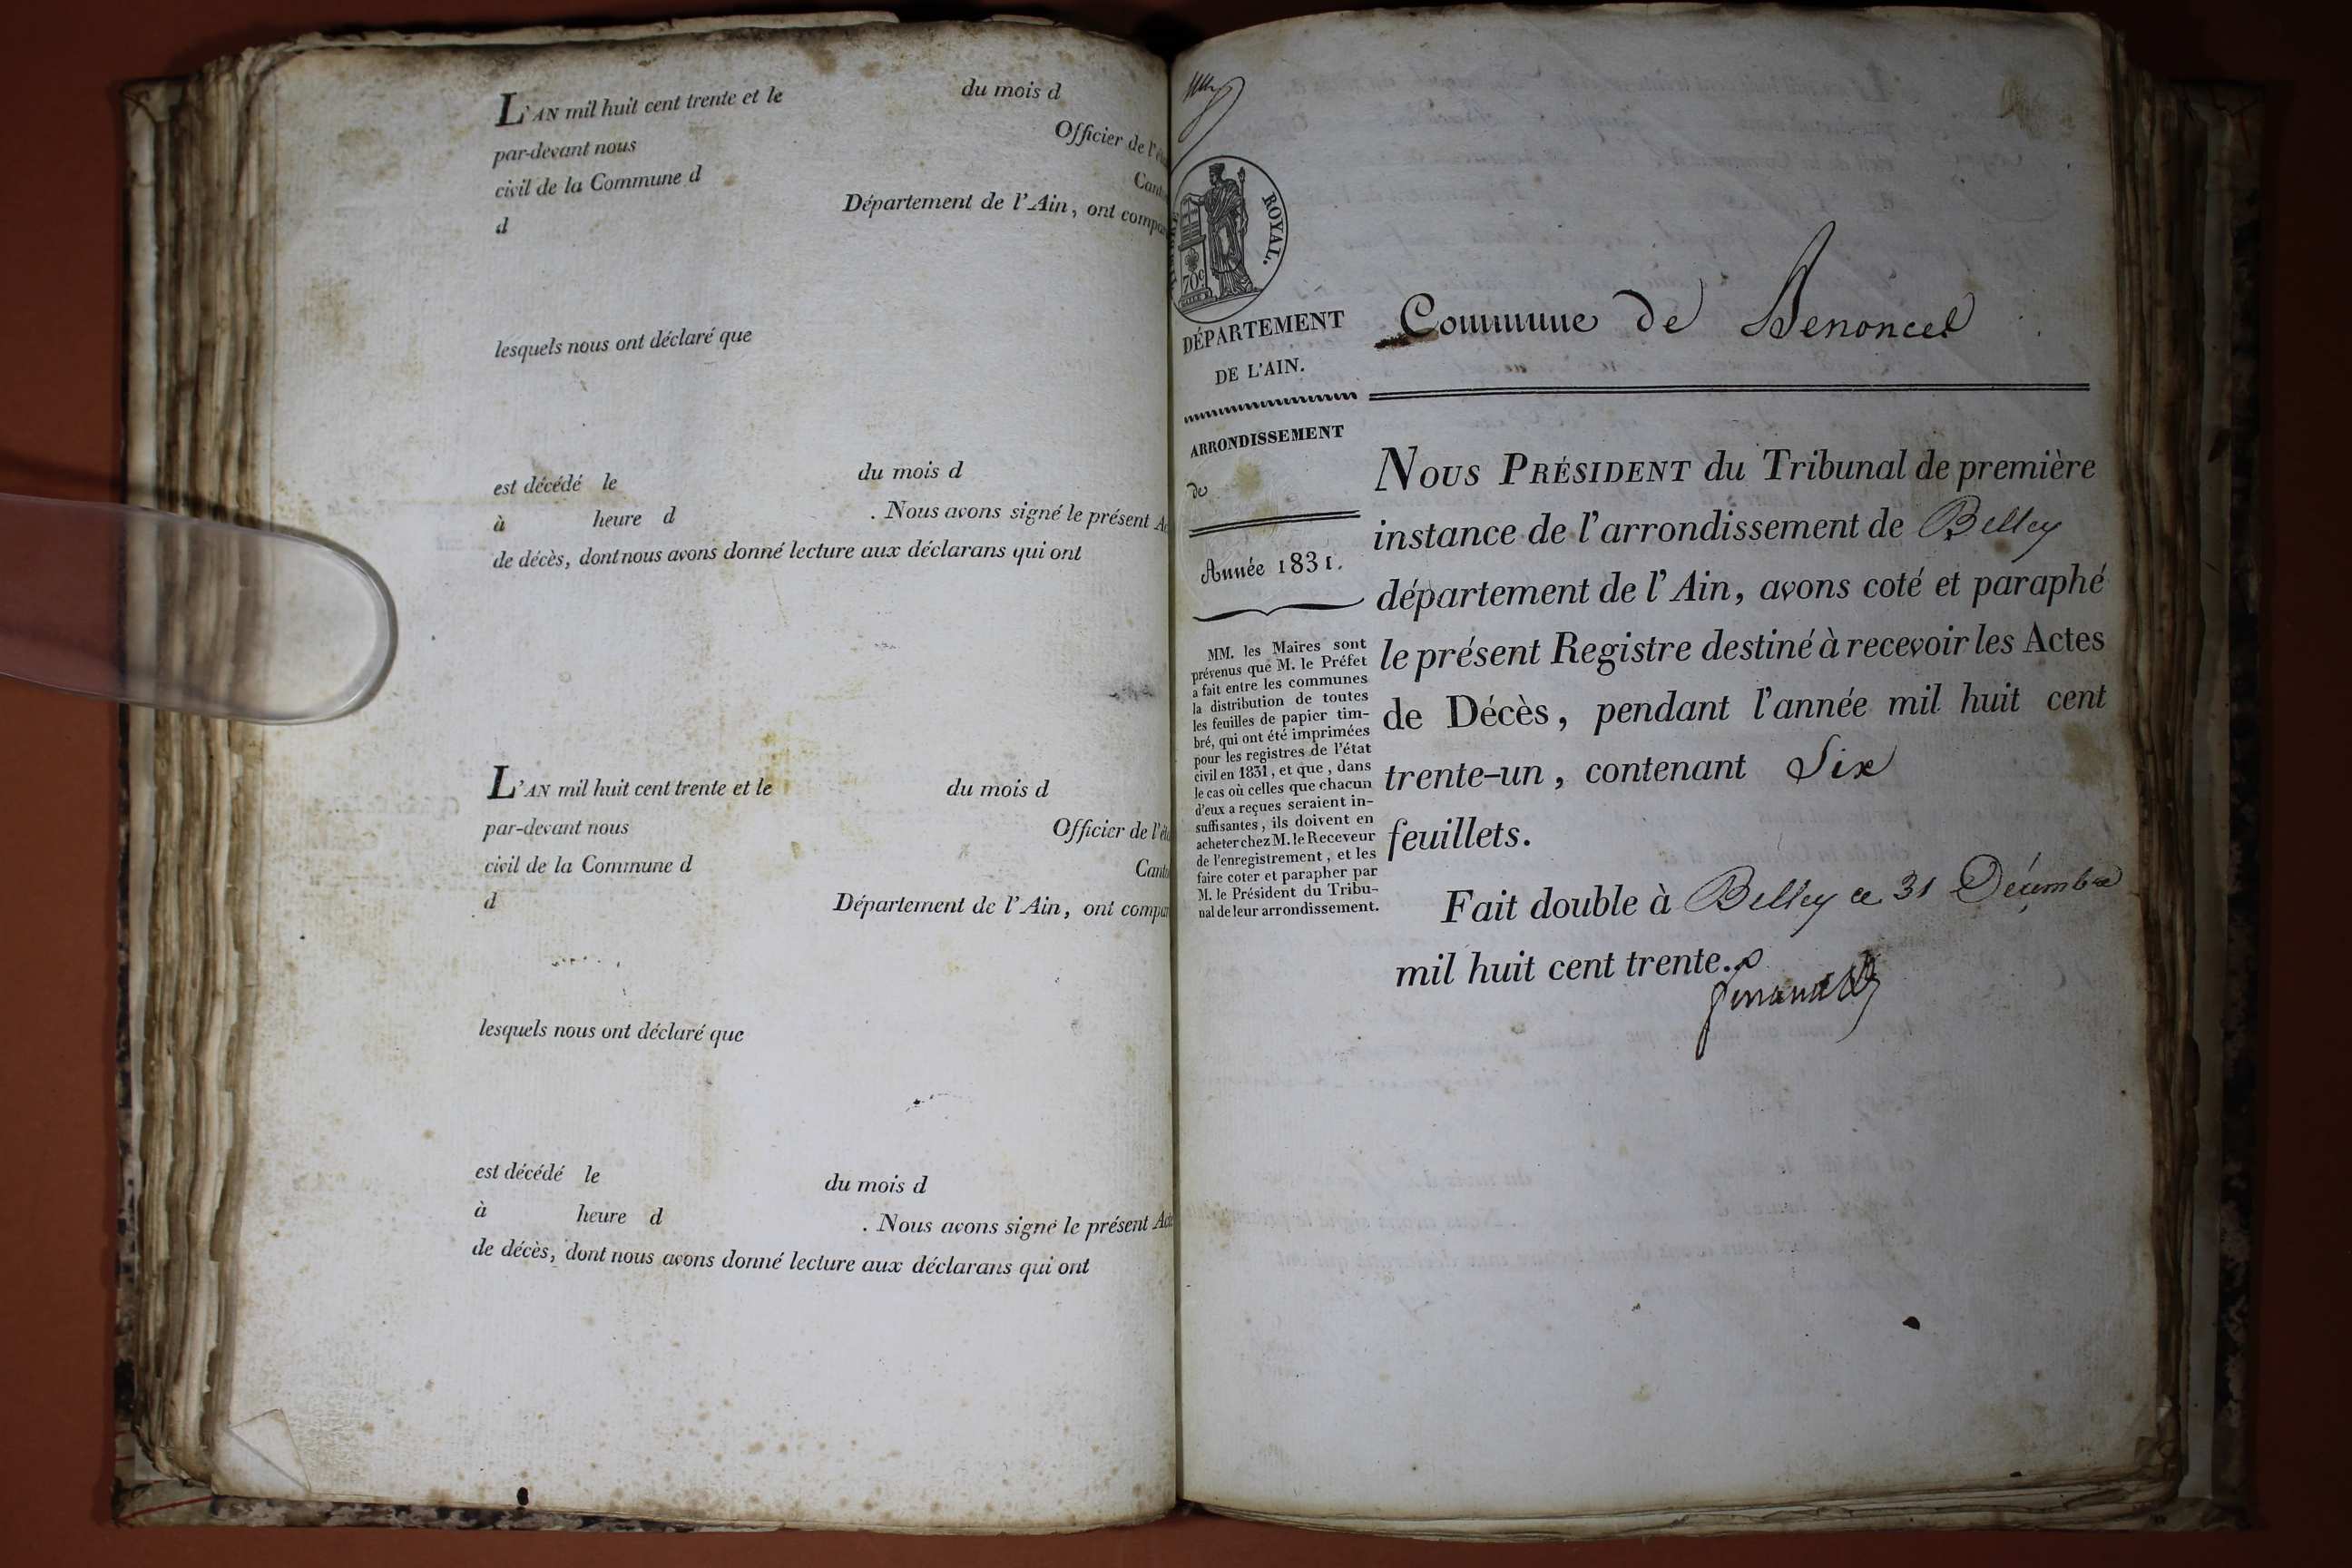 L'AN mil huit cent trente et le du mois d
par-devant nous Officier de l'
civil de la Commune d
d Département de l'Ain, ont
lesquels nous ont déclaré que
est décédé le du mois d
à heure d . Nous avons signé le présent
de décès, dont nous avons donné lecture aux déclarans qui ont
L'AN mil huit cent trente et le du mois d
par-devant nous Officier de l'
civil de la Commune d
d Département de l'Ain, ont
lesquels nous ont déclaré que
est décédé le du mois d
à heure d . Nous avons signé le présent
de décès, dont nous avons donné lecture aux déclarans qui ont
ROYAL.
70c
DÉPARTEMENT
DE L'AIN.
ARRONDISSEMENT
de
Année 1831.
MM. les Maires sont
prévenus que M. le Préfet
a fait entre les communes
la distribution de toutes
les feuilles de papier tim-
bré, qui ont été imprimées
pour les registres de l'état
civil en 1831, et que, dans
le cas où celles que chacun
d'eux a reçues seraient in-
suffisantes, ils doivent en
acheter chez M. le Receveur
de l'enregistrement, et les
faire coter et parapher par
M. le Président du Tribu-
nal de leur arrondissement.
Commune de Benoncel
NOUS PRÉSIDENT du Tribunal de première
instance de l'arrondissement de Belley
département de l'Ain, avons coté et paraphé
le présent Registre destiné à recevoir les Actes
de Décès, pendant l'année mil huit cent
trente-un, contenant Six
feuillets.
Fait double à Belley ce 31 Décembre
mil huit cent trente.